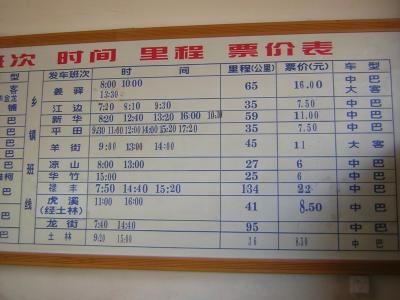 班次 时间 里程 票价表
型 发车班次 时 间 里程(公里) 票价(元) 车 型
客 姜驿 8:00 10:00 13:30 65 16.00 中巴 大客
金龙
铺 江边 7:20 8:10 9:30 35 7.50 中巴
乡镇班线
巴 新华 8:20 12:40 13:20 16:00 59 11.00 中巴
巴 平田 9:30 11:40 12:00 14:00 15:20 17:20 35 7.50 中巴
客 羊街 9:00 13:00 14:00 45 11 大客
巴 凉山 8:00 13:00 27 6 中巴
华竹 15:00 25 6 中巴
巴 禄丰 7:50 14:40 15:20 134 22 中巴
巴 虎溪 11:00 16:00 41 8.50 中巴
(经土林)
巴 龙街 7:40 14:40 95 中巴
巴 土林 9:20 15:00 36 8.50 中巴